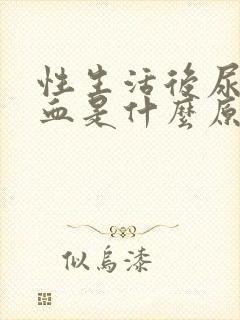 性生活後尿
血是什麼原
似烏漆